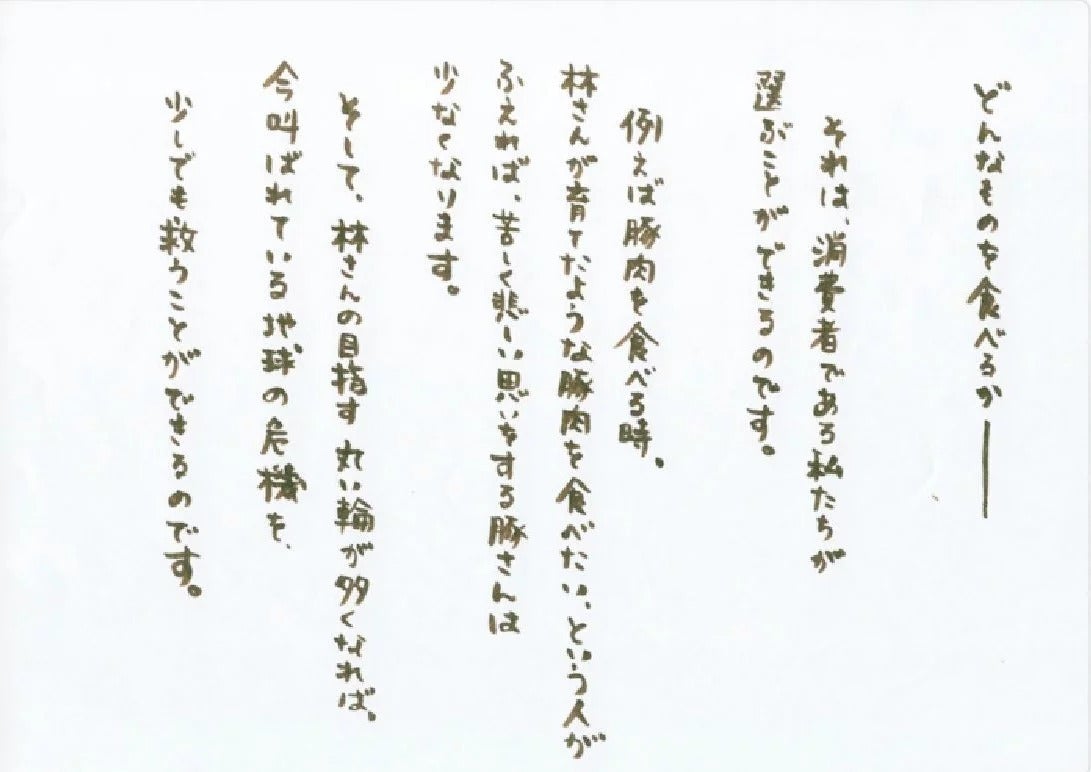 どんなものを食べるか――
それは、消費者である私たちが
選ぶことができるのです。
例えば豚肉を食べる時。
林さんが育てたような豚肉を食べたい、という人が
ふえれば、苦しく悲しい思いをする豚さんは
少なくなります。
そして、林さんの目指す丸い輪が多くなれば、
今叫ばれている地球の危機を、
少しでも救うことができるのです。